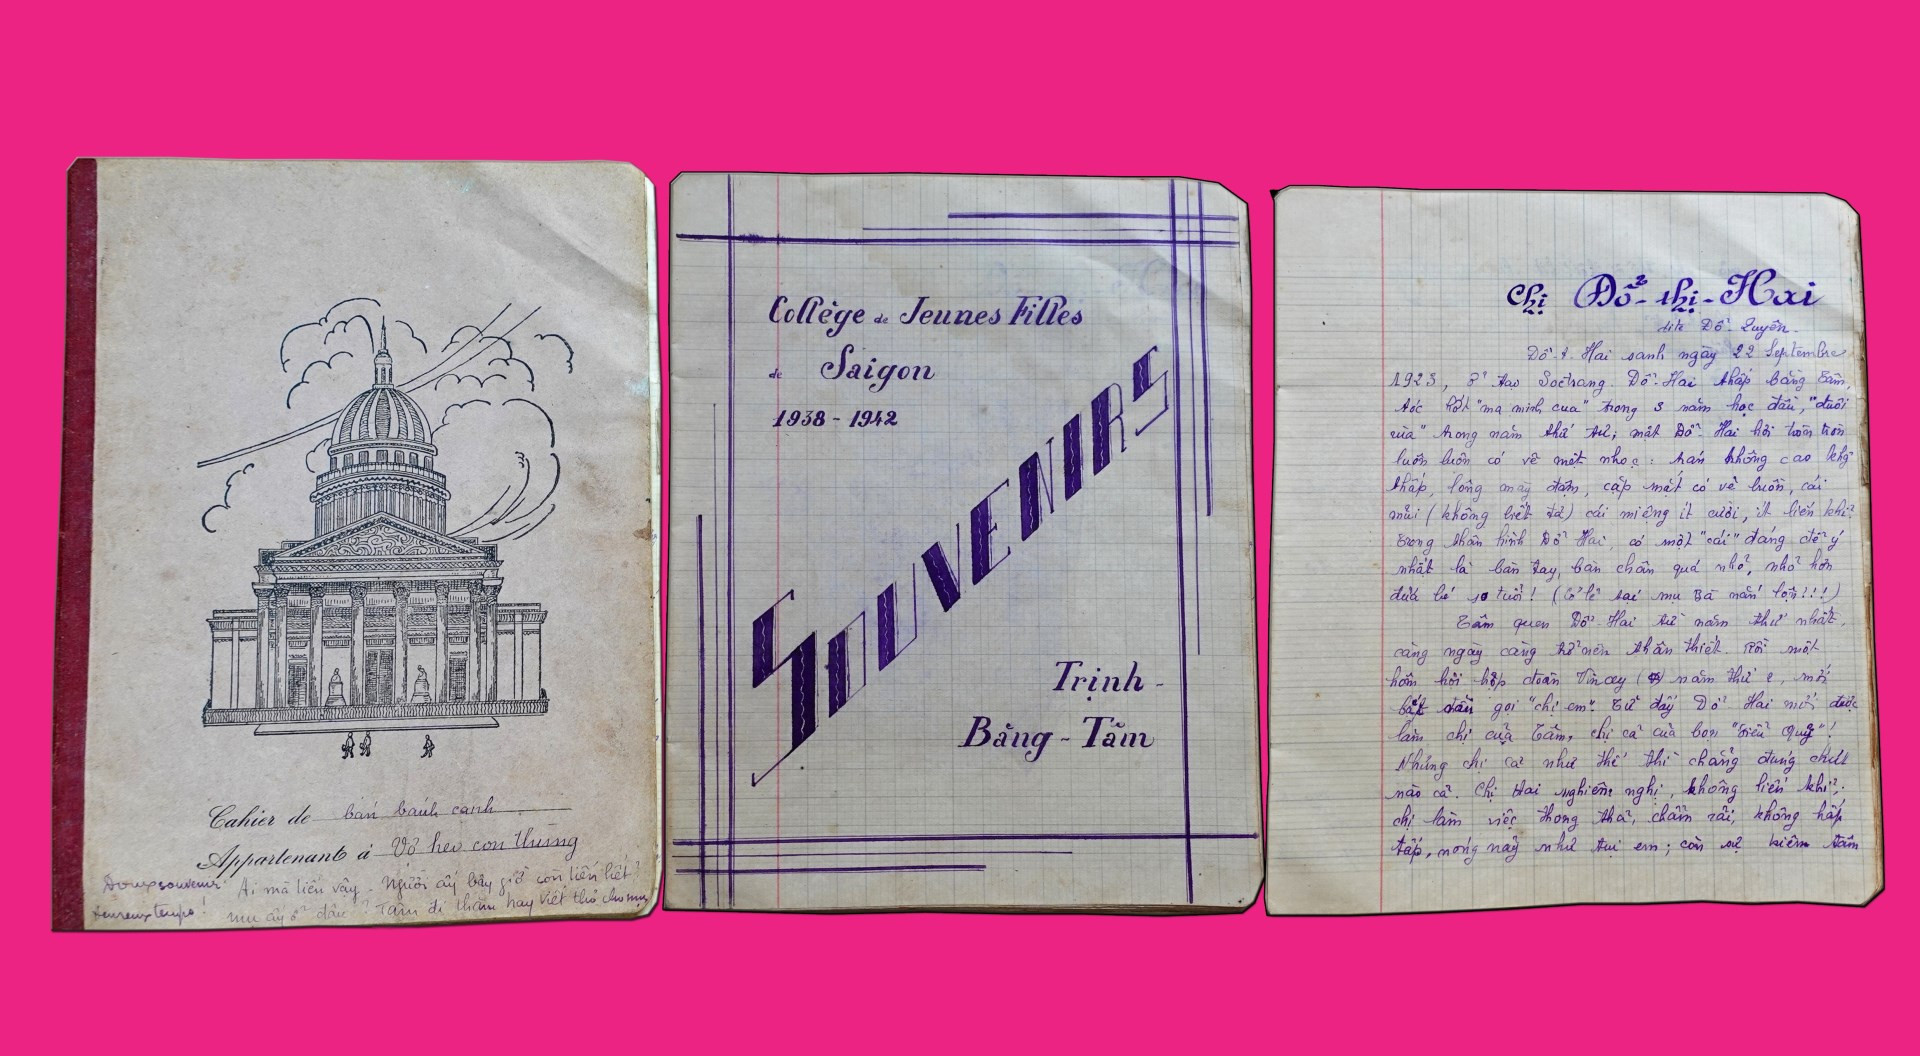 Cahier de bán bánh canh
Appartenant à Vỏ heo con thúng
Doux souvenir!
heureux temps!
Ai mà liến vậy. Người ấy bây giờ còn liến hết?
mụ ấy ở đâu? Tâm đi thăm hay viết thơ cho mụ
Collège de Jeunes Filles
de Saigon
1938 - 1942
SOUVENIRS
Trịnh -
Băng - Tâm
Chị Đỗ - thị - Hai
dite Đỗ - Quyên -
Đỗ. t. Hai sanh ngày 22 Septembre
1923, ở tại Soctrang. Đỗ. Hai thấp bằng Tâm,
tóc hớt "ma minh cua" trong 3 năm học đầu, "đuôi
rùa" trong năm thứ tư; mặt Đỗ. Hai hơi tròn tròn
luôn luôn có vẻ mệt nhọc: trán không cao không
thấp, lông mày đậm, cặp mắt có vẻ buồn, cái
mũi (không biết tả) cái miệng ít cười, ít liến khỉ.
Trong thân hình Đỗ Hai, có một "cái" đáng để ý
nhất là bàn tay, bàn chân quá nhỏ, nhỏ hơn
đứa bé 10 tuổi! (Có lẽ tại mụ Bà nắn lộn!!!)
Tâm quen Đỗ. Hai từ năm thứ nhất,
càng ngày càng trở nên thân thiết. Rồi một
hôm hội hiệp đoàn năm thứ 2, mới
bắt đầu gọi "chị em". Từ đấy Đỗ Hai mới được
làm chị của Tâm, chị cả của bọn "tiểu quỷ"!
Nhưng chị cả như thế thì chẳng đúng chút
nào cả. Chị Hai nghiêm nghị, không liến khỉ;
chị làm việc thong thả, chậm rãi, không hấp
tấp, nóng nảy như tụi em; còn sự kiên tâm